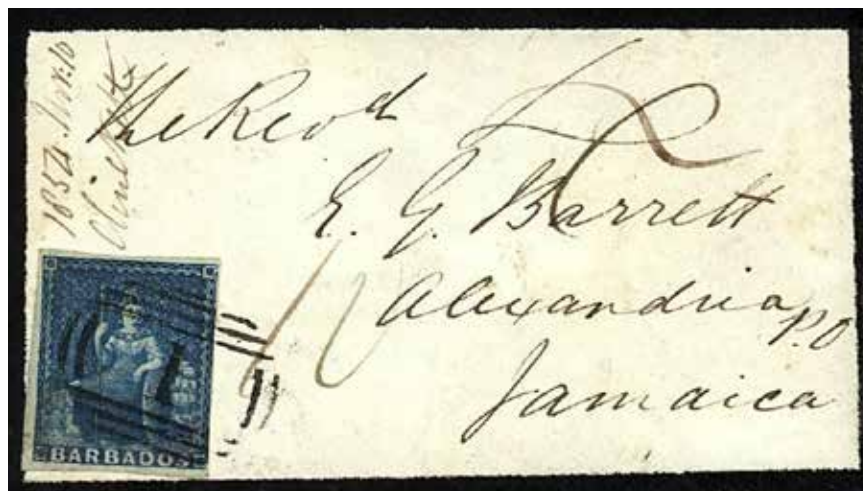 1854 Nov. 10
The Revd
E. G. Barrett
Alexandria P.O
Jamaica
1
BARBADOS